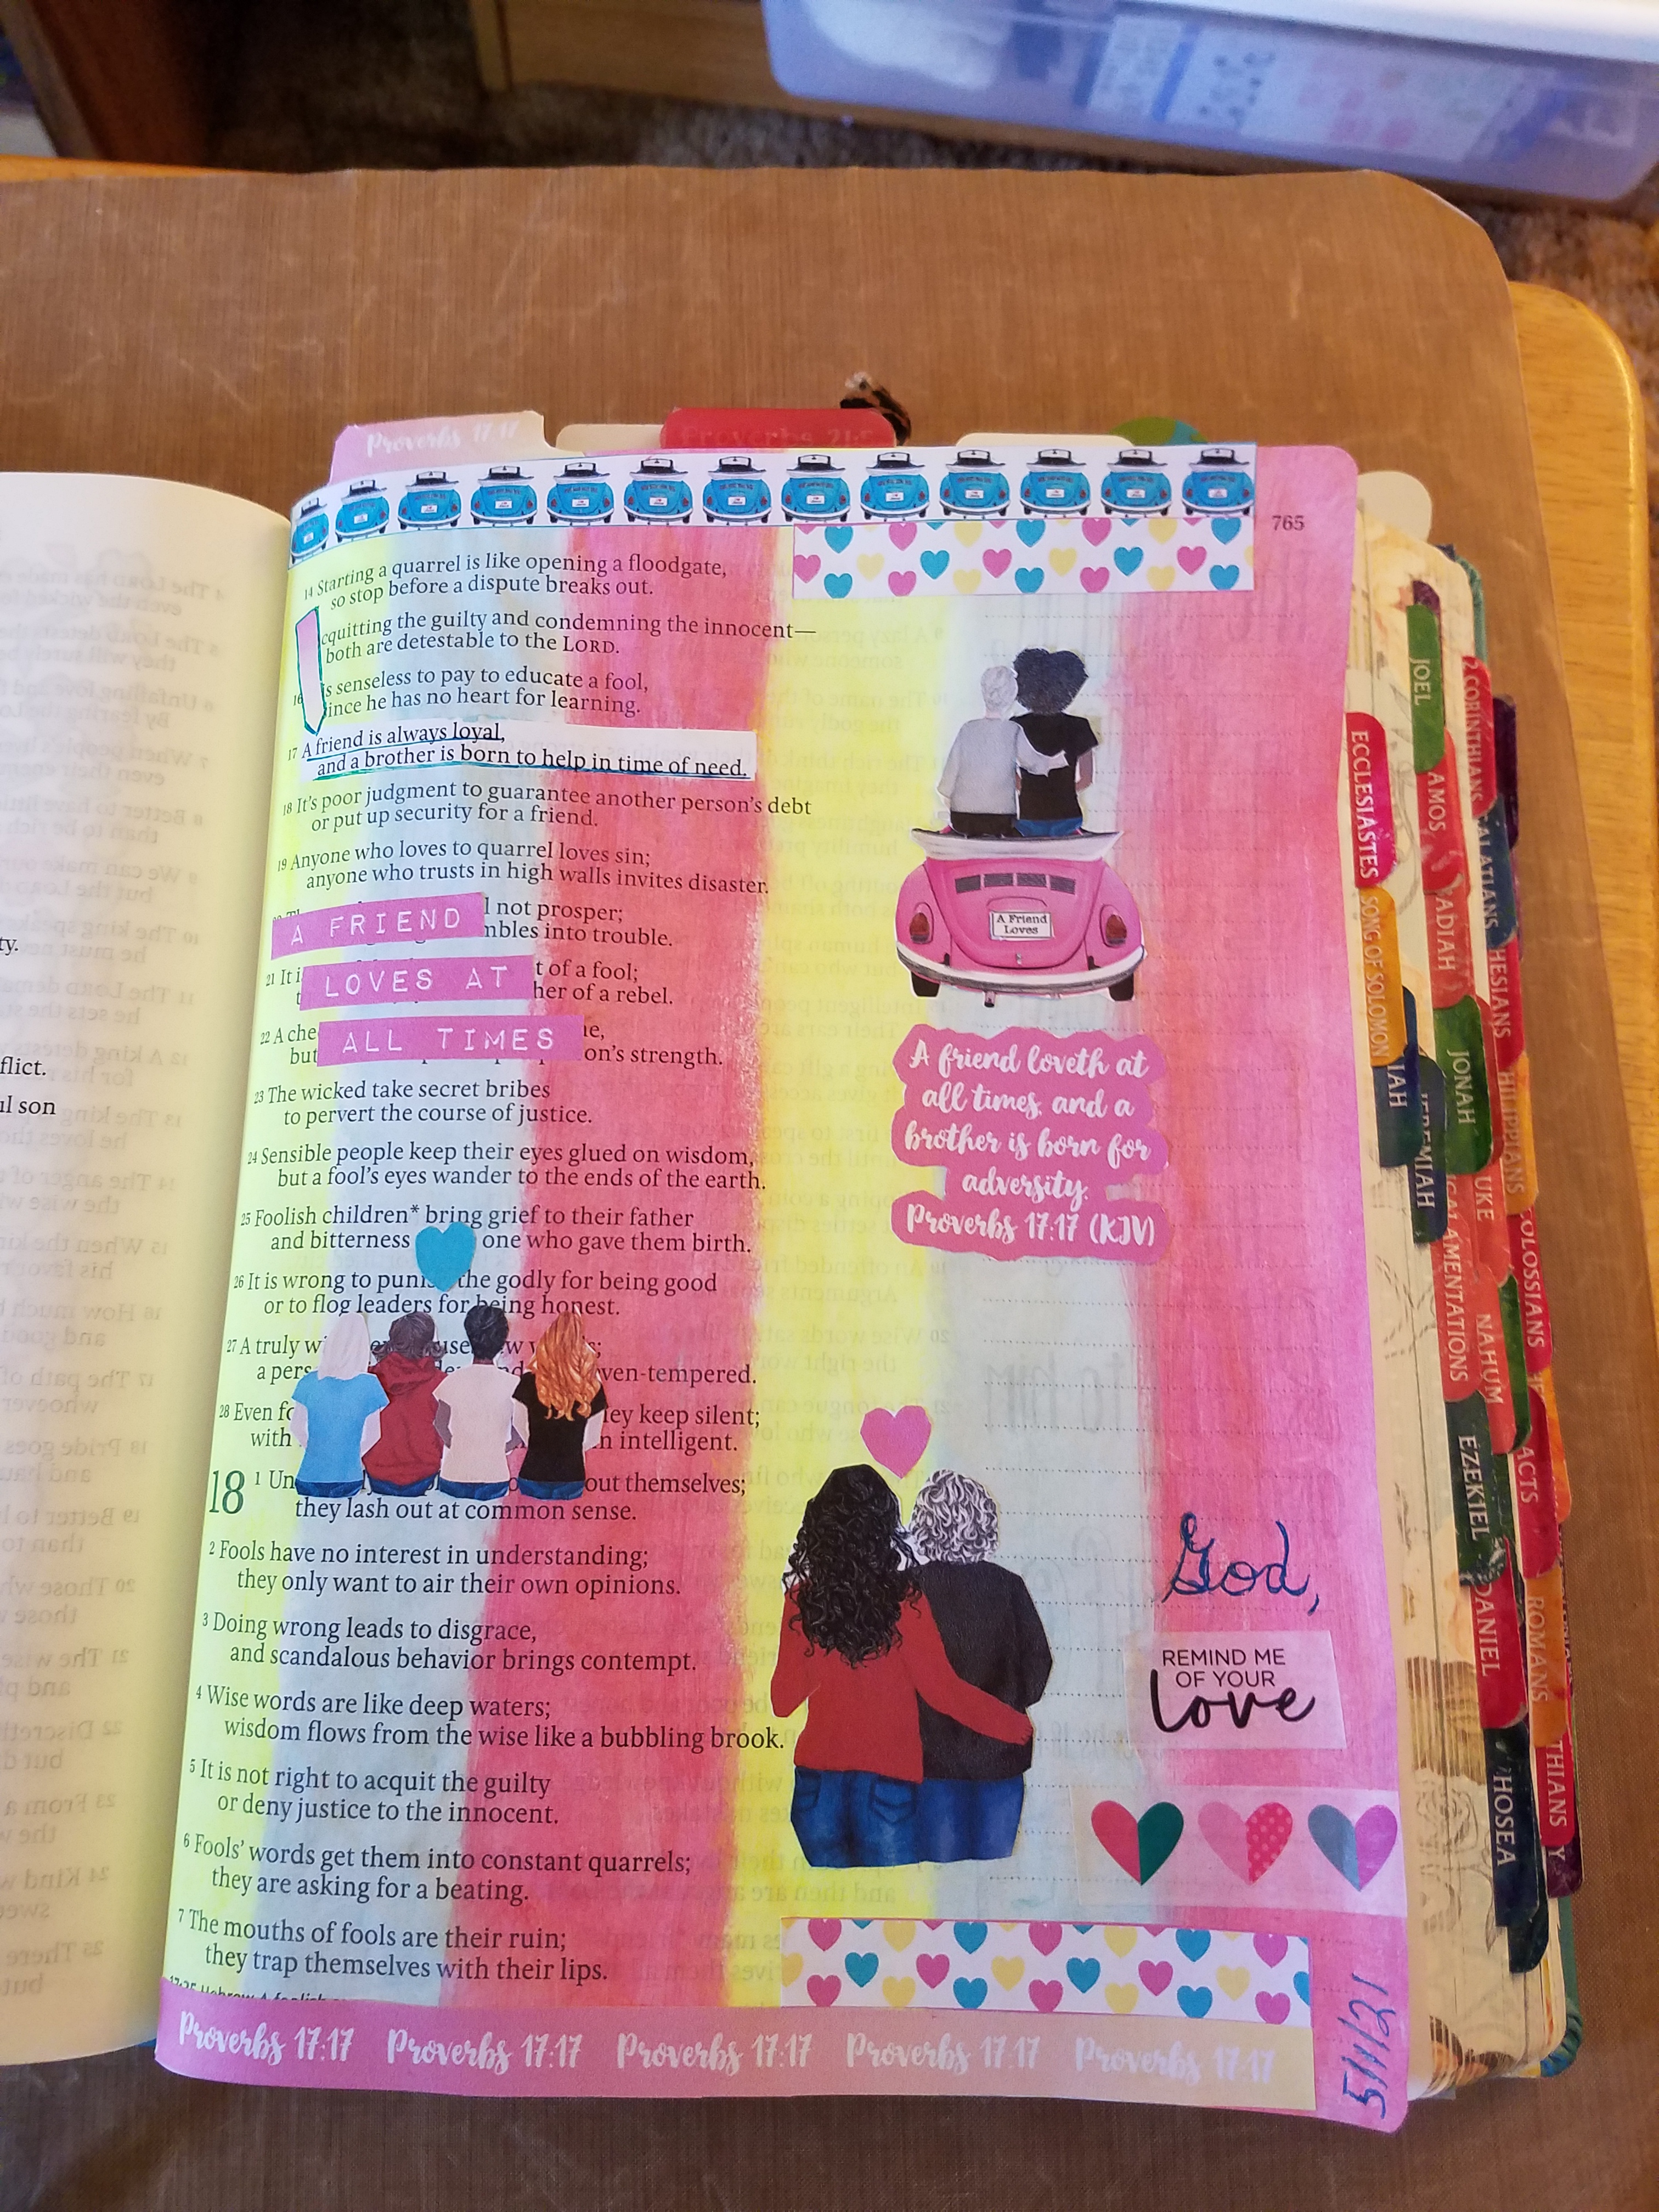 Proverbs 17:17
Proverbs 21:5
765
14 Starting a quarrel is like opening a floodgate,
so stop before a dispute breaks out.
cquitting the guilty and condemning the innocent—
both are detestable to the LORD.
16 s senseless to pay to educate a fool,
ince he has no heart for learning.
17 A friend is always loyal,
and a brother is born to help in time of need.
18 It's poor judgment to guarantee another person's debt
or put up security for a friend.
19 Anyone who loves to quarrel loves sin;
anyone who trusts in high walls invites disaster.
l not prosper;
A FRIEND
mbles into trouble.
21 It i t of a fool;
LOVES AT
her of a rebel.
22 A che e,
ALL TIMES
but on's strength.
23 The wicked take secret bribes
to pervert the course of justice.
24 Sensible people keep their eyes glued on wisdom,
but a fool's eyes wander to the ends of the earth.
25 Foolish children* bring grief to their father
and bitterness one who gave them birth.
26 It is wrong to punis the godly for being good
or to flog leaders for being honest.
27 A truly w
a pers ven-tempered.
28 Even fo ey keep silent;
with n intelligent.
18 1 Un out themselves;
they lash out at common sense.
2 Fools have no interest in understanding;
they only want to air their own opinions.
3 Doing wrong leads to disgrace,
and scandalous behavior brings contempt.
4 Wise words are like deep waters;
wisdom flows from the wise like a bubbling brook.
5 It is not right to acquit the guilty
or deny justice to the innocent.
6 Fools' words get them into constant quarrels;
they are asking for a beating.
7 The mouths of fools are their ruin;
they trap themselves with their lips.
Proverbs 17:17 Proverbs 17:17 Proverbs 17:17 Proverbs 17:17 Proverbs 17:17
A Friend
Loves
A friend loveth at
all times, and a
brother is born for
adversity.
Proverbs 17:17 (KJV)
God,
REMIND ME
OF YOUR
love
5/1/21
ty.
flict.
ul son
ECCLESIASTES
SONG OF SOLOMON
IAH
JEREMIAH
LAMENTATIONS
EZEKIEL
DANIEL
HOSEA
JOEL
AMOS
ADIAH
JONAH
UKE
NAHUM
ACTS
ROMANS
THIANS
2 CORINTHIANS
ALATIANS
HESIANS
HILIPPIANS
OLOSSIANS
Y